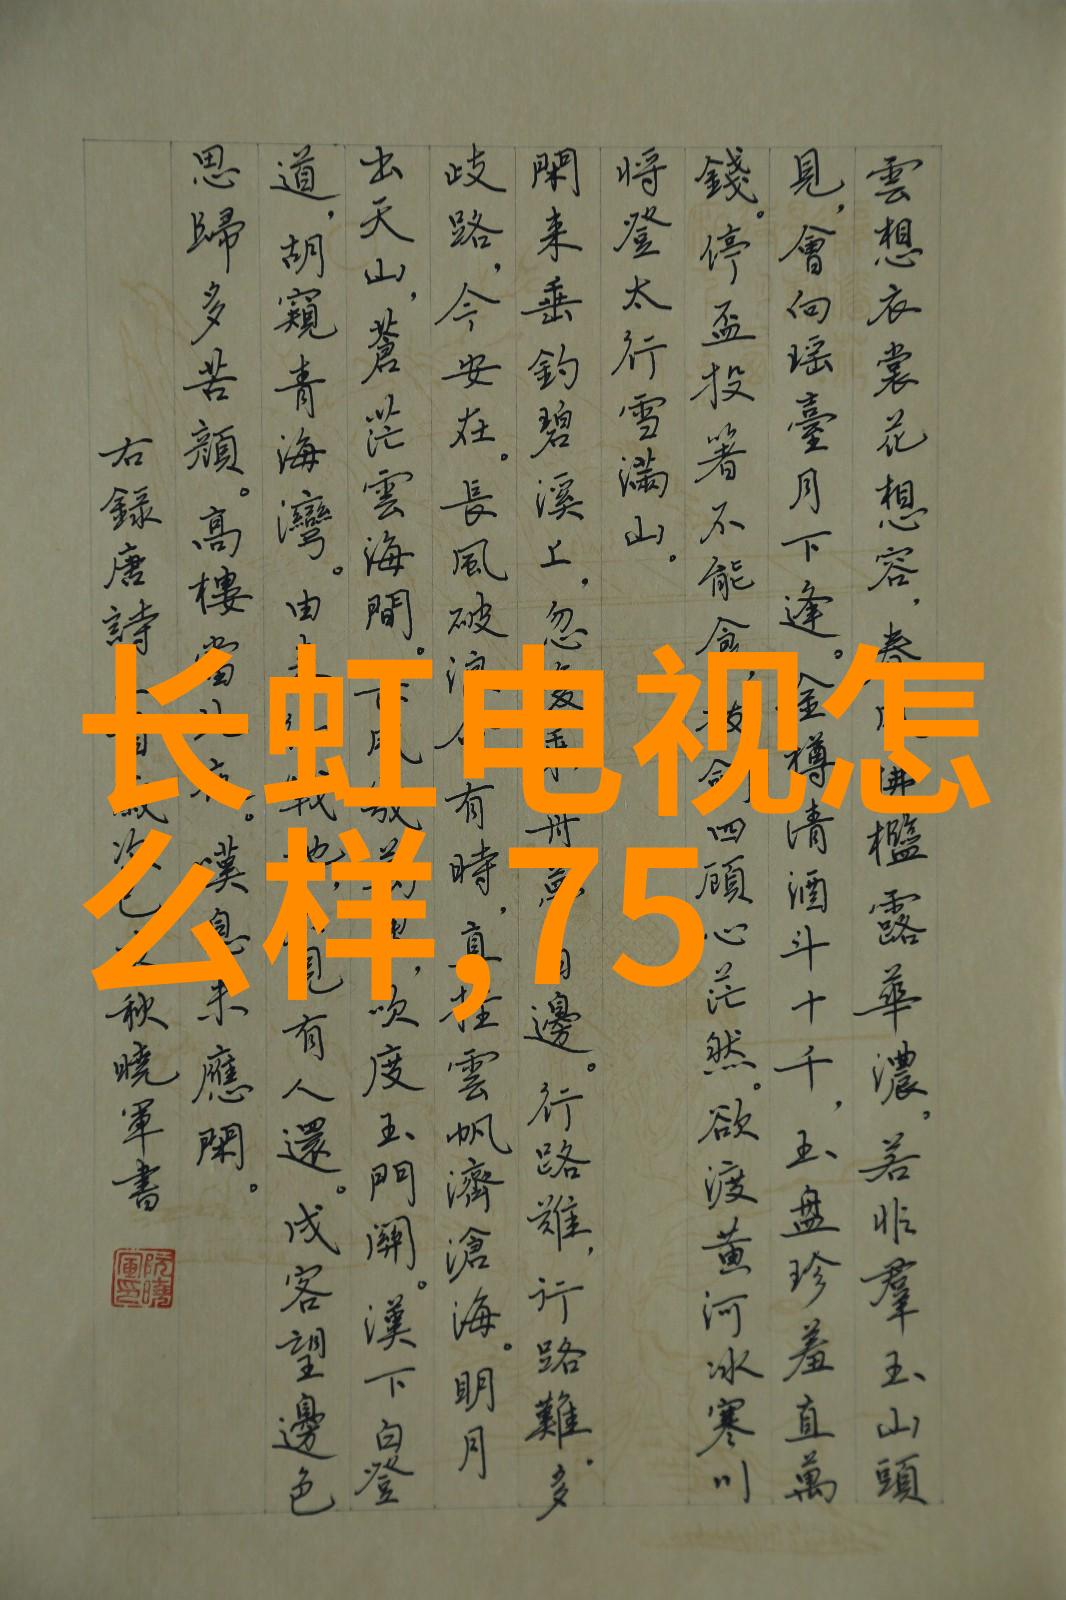 雲想衣裳花想容，春風拂檻露華濃。若非羣玉山頭
見，會向瑶臺月下逢。金樽清酒斗十千，玉盘珍羞直萬
錢。停盃投箸不能食，拔劍四顧心茫然。欲渡黄河冰寒川
将登太行雪滿山。
閑来垂釣碧溪上，忽復乘舟夢日邊。行路難，行路難。多
歧路，今安在。長風破浪會有時，直挂雲帆濟滄海。明月
出天山，蒼茫雲海間。長風幾萬里，吹度玉門關。漢下白登
道，胡窺青海灣。由来征戰地，不見有人還。戍客望邊色
思歸多苦顔。高樓當此夜。嘆息未應閑。
右録唐詩 首歲次己 秋曉軍書
阮曉軍印
长虹电视怎
么样,75